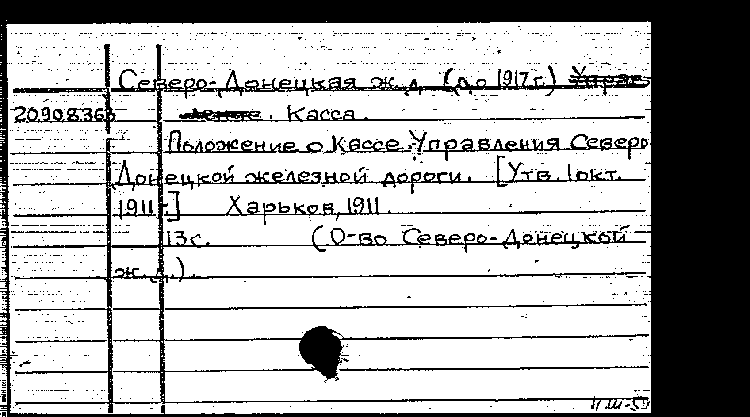 Северо-Донецкая ж.д. (до 1917 г.)
20908363 . Касса.
Положение о Кассе Управления Северо-
Донецкой железной дороги. [Утв. 1 окт.
1911 г.] Харьков, 1911.
13 с. (О-во Северо-Донецкой
ж.д.).